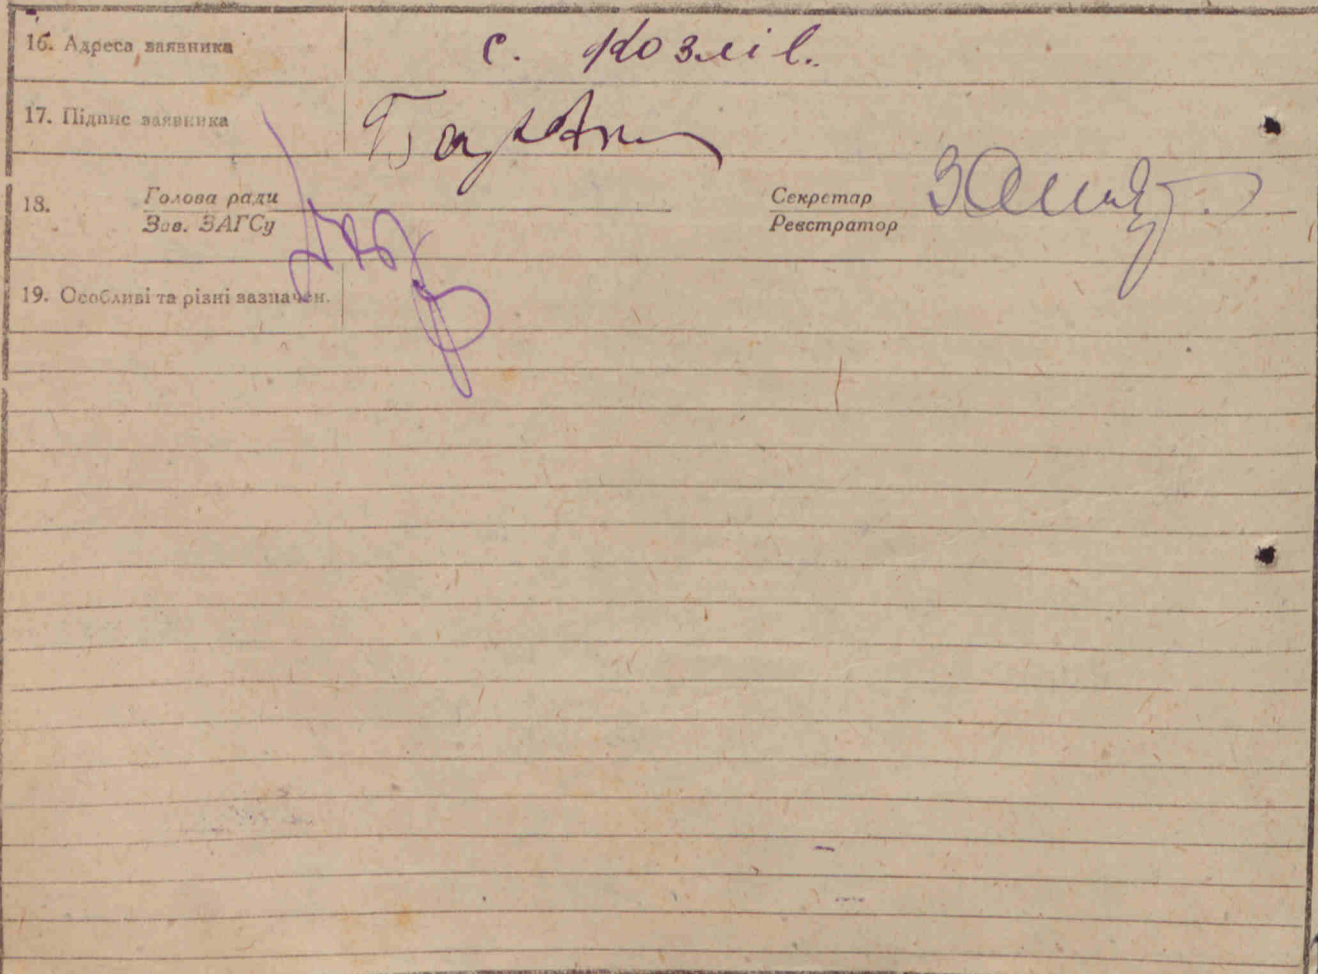 16. Адреса заявника с. Козлів.
17. Підпис заявника
18. Голова ради Секретар
Зав. ЗАГСу Реєстратор
19. Особливі та різні зазначен.